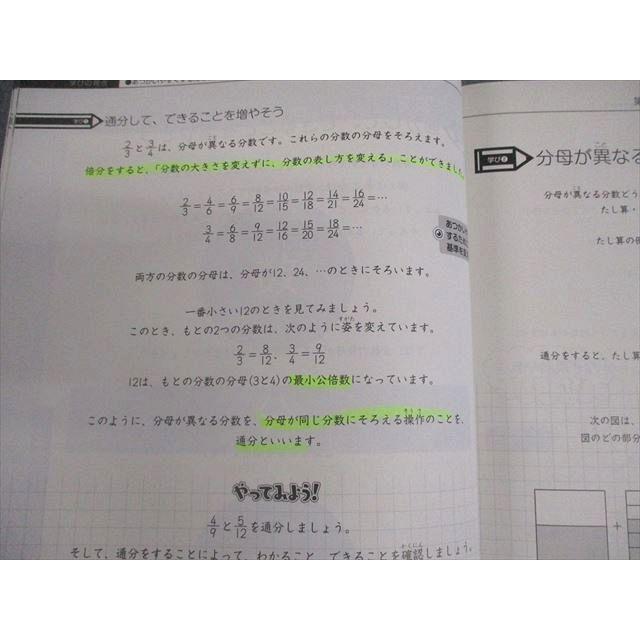 学びの視点
学び1
通分して、できることを増やそう
2/3と3/4は、分母が異なる分数です。これらの分数の分母をそろえます。
倍分をすると、「分数の大きさを変えずに、分数の表し方を変える」ことができました。
2/3=4/6=6/9=8/12=10/15=12/18=14/21=16/24=…
3/4=6/8=9/12=12/16=15/20=18/24=…
あつかいや
するため
基準を
両方の分数の分母は、分母が12、24、…のときにそろいます。
一番小さい12のときを見てみましょう。
このとき、もとの2つの分数は、次のように姿を変えています。
すがた
2/3=8/12、3/4=9/12
12は、もとの分数の分母(3と4)の最小公倍数になっています。
このように、分母が異なる分数を、分母が同じ分数にそろえる操作のことを、
そうさ
通分といいます。
やってみよう!
4/9と5/12を通分しましょう。
かくにん
そして、通分をすることによって、わかること、できることを確認しましょう。
学び2
分母が異なる
分母が異なる分数どう
たし算・
たし算の
通分をすると、たし算
次の図は、
図のどの部分
+